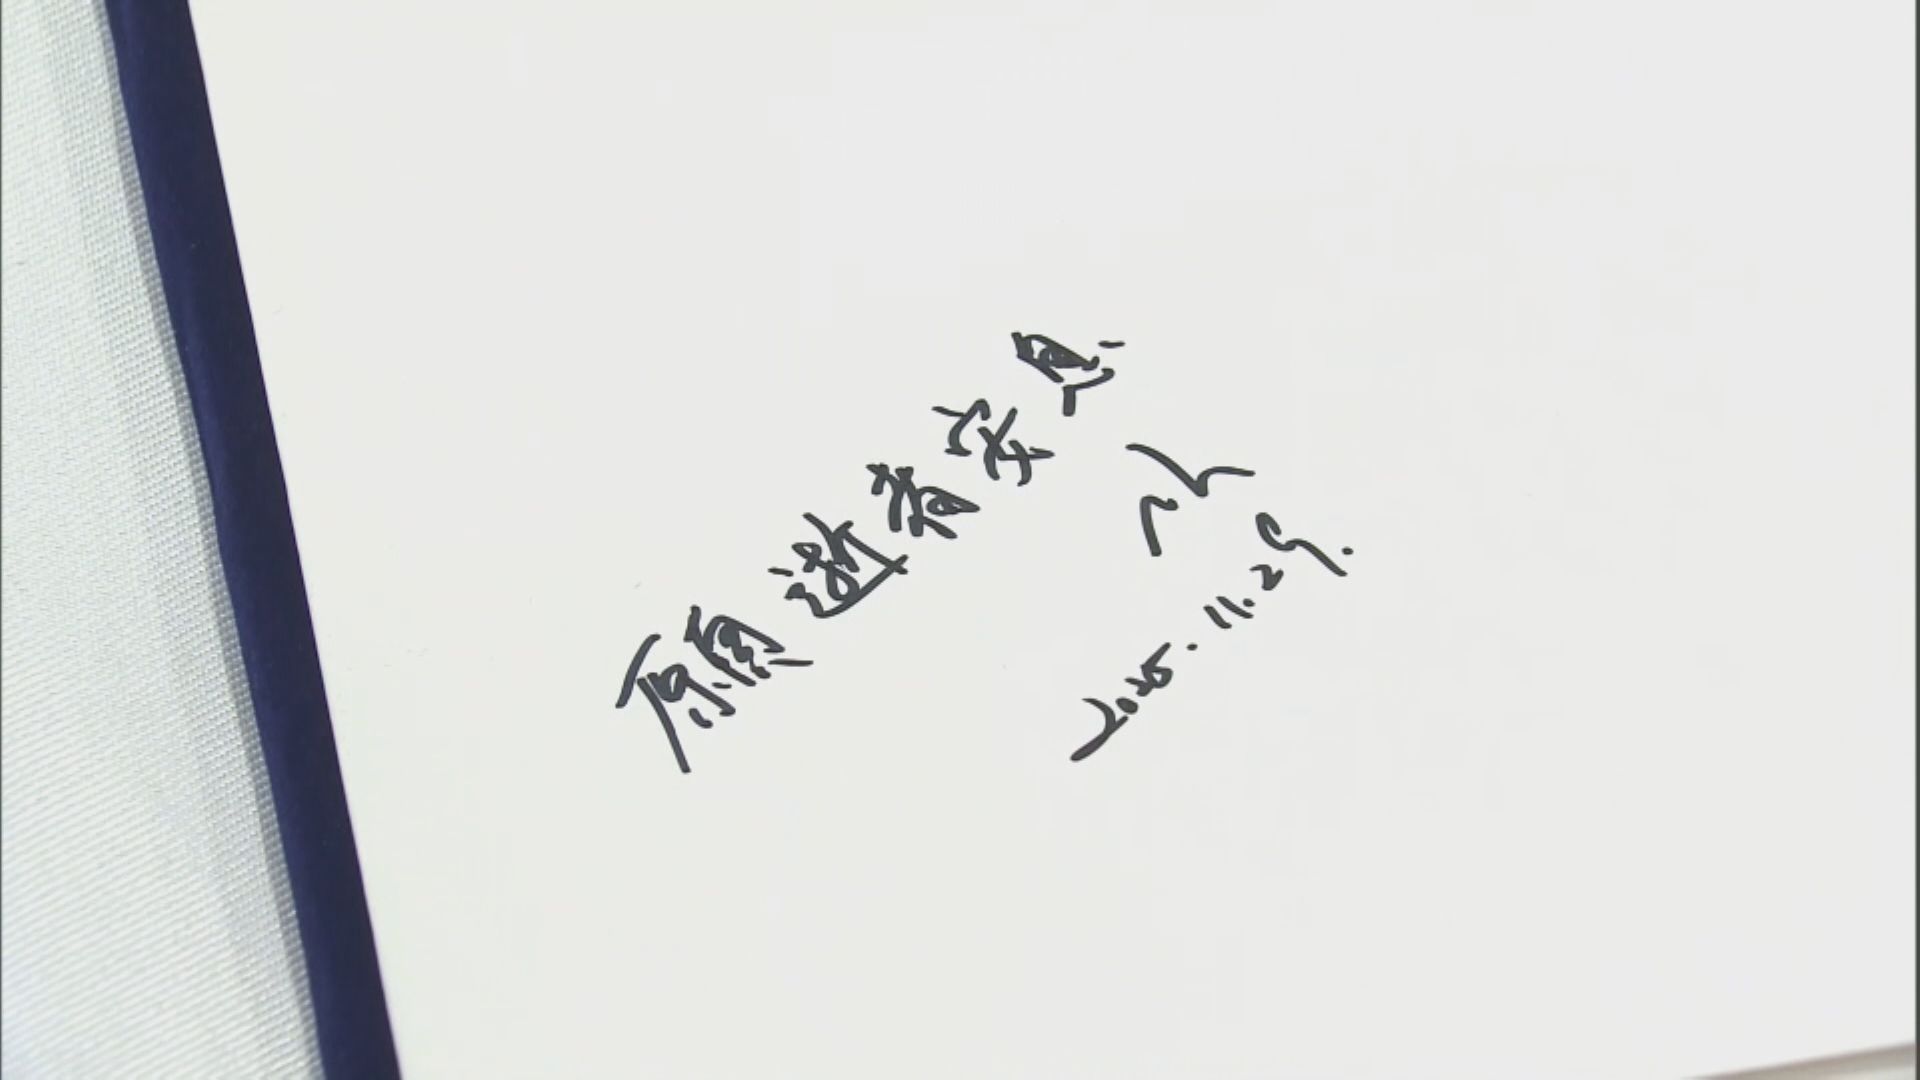 愿逝者安息
2025.11.29.